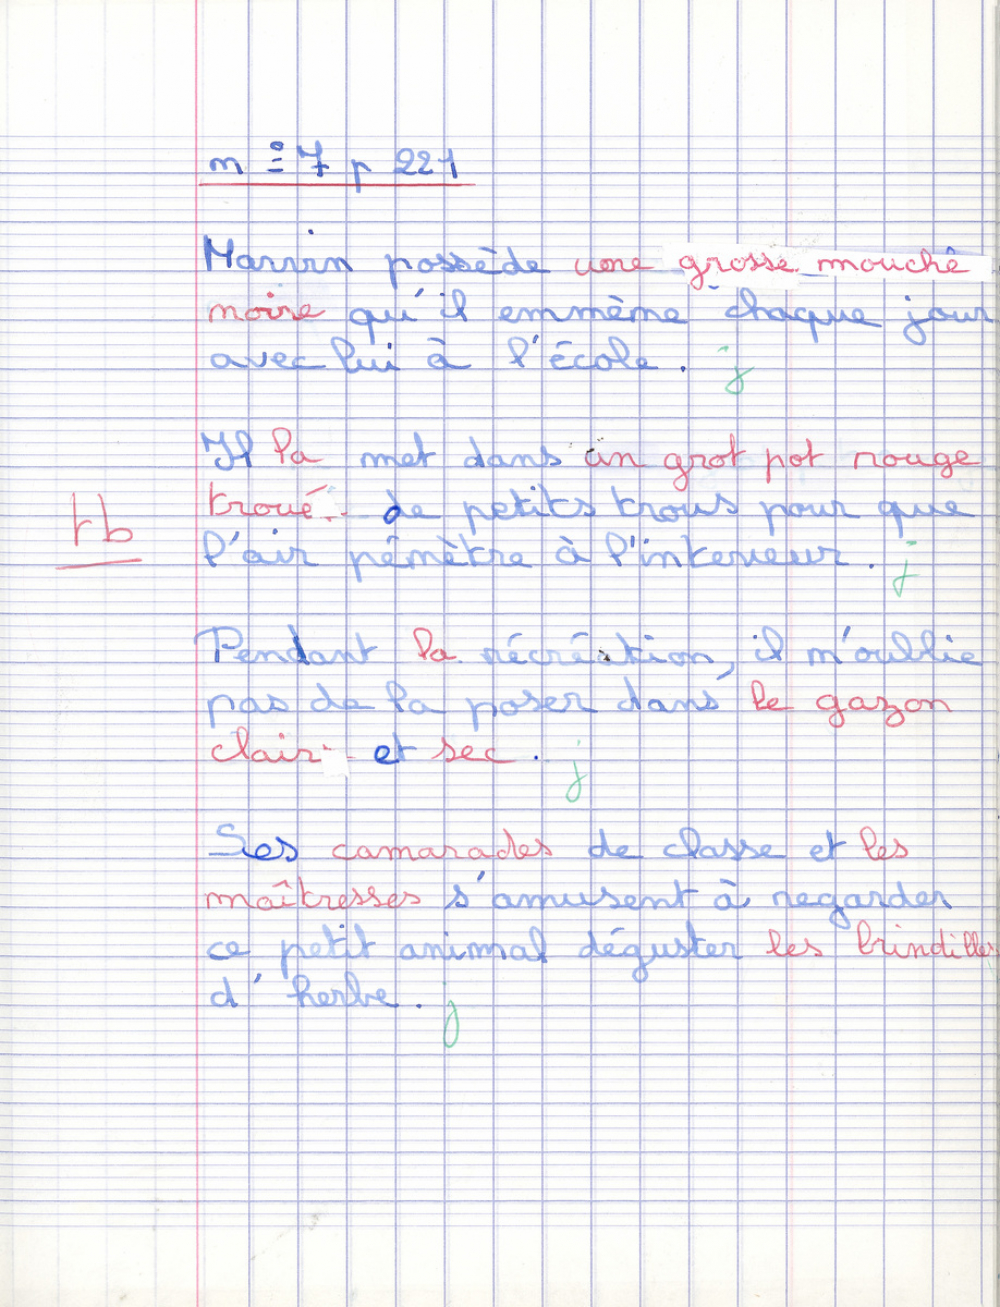 n° 7 p 221
Marvin possède une grosse mouche
noire qu'il emmème chaque jour
avec lui à l'école. j
Il la met dans un grot pot rouge
troué de petits trous pour que
tb
l'air pénètre à l'interieur. j
Pendant la récréation, il n'oublie
pas de la poser dans le gazon
clair et sec. j
Ses camarades de classe et les
maîtresses s'amusent à regarder
ce petit animal déguster les brindilles
d'herbe. j